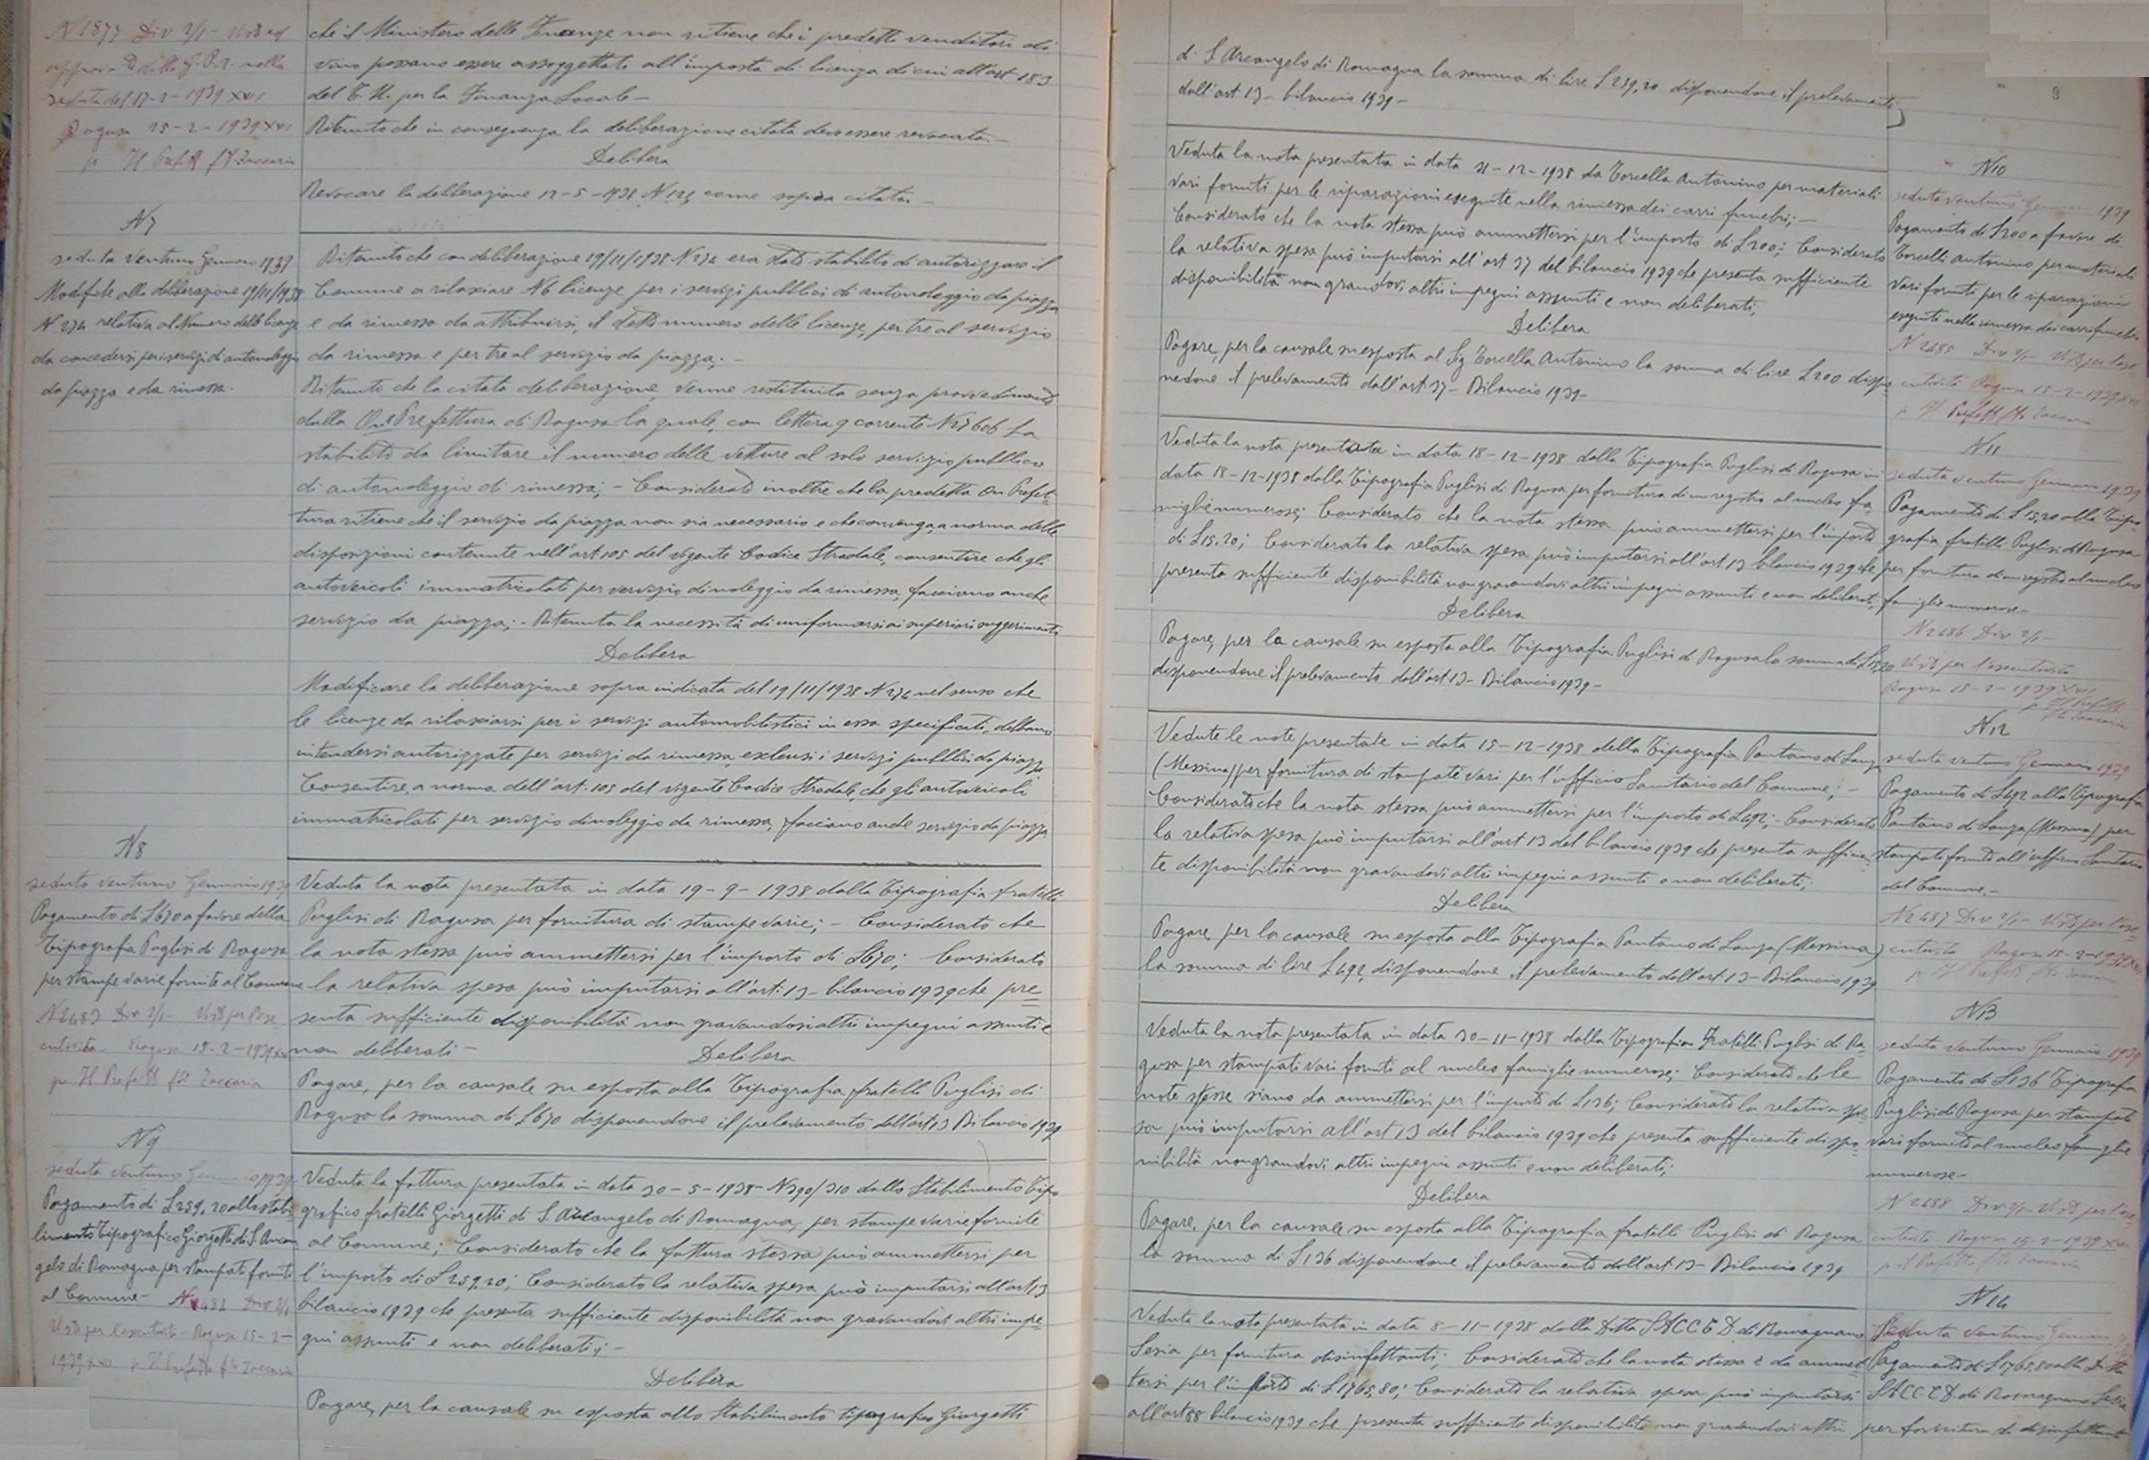 N 1877 Div 2/1 - Visto ed
approvato dalla G.P.A. nella
seduta del 17-2-1939 XVII
Ragusa 25-2-1939 XVII
p. Il Prefetto fto Zaccaria
che il Ministero delle Finanze non ritiene che i predetti venditori di
vino possano essere assoggettati all'imposta di licenza di cui all'art 183
del T.U. per la Finanza Locale -
Ritenuto che in conseguenza la deliberazione citata dev'essere revocata. -
Delibera
Revocare la deliberazione 12-5-1938 N 124 come sopra citata -
N 7
seduta ventuno Gennaio 1939
Modifiche alla deliberazione 19/11/1938
N 274 relativa al Numero delle licenze
da concedersi per i servizi di autonoleggio
da piazza e da rimessa.
Ritenuto che con deliberazione 19/11/1938 N 274 era stato stabilito di autorizzare il
Comune a rilasciare N 6 licenze per i servizi pubblici di autonoleggio da piazza
e da rimessa da attribuirsi, il detto numero delle licenze, per tre al servizio
da rimessa e per tre al servizio da piazza; -
Ritenuto che la citata deliberazione venne restituita senza provvedimento
dalla On. Prefettura di Ragusa la quale, con lettera 9 corrente N 27606 ha
stabilito da limitare il numero delle vetture al solo servizio pubblico
di autonoleggio di rimessa; - Considerato inoltre che la predetta On Prefet-
tura ritiene che il servizio da piazza non sia necessario e che convenga, a norma delle
disposizioni contenute nell'art 105 del vigente Codice Stradale, consentire che gli
autoveicoli immatricolati per servizio di noleggio da rimessa, facciano anche
servizio da piazza; - Ritenuta la necessità di uniformarsi ai superiori suggerimenti
Delibera
Modificare la deliberazione sopra indicata del 19/11/1938 N 274 nel senso che
le licenze da rilasciarsi per i servizi automobilistici in essa specificati, debbano
intendersi autorizzate per servizi da rimessa, esclusi i servizi pubblici da piazza
Consentire, a norma dell'art. 105 del vigente Codice Stradale, che gli autoveicoli
immatricolati per servizio di noleggio da rimessa, facciano anche servizio da piazza
N 8
seduta ventuno Gennaio 1939
Pagamento di £ 670 a favore della
Tipografia Puglisi di Ragusa
per stampe varie fornite al Comune
N 2483 Div 2/1 - Visto per l'ese
cutività - Ragusa 15-2-1939 XVII
p. Il Prefetto fto Zaccaria
Veduta la nota presentata in data 19-9-1938 dalla Tipografia fratelli
Puglisi di Ragusa per fornitura di stampe varie; - Considerato che
la nota stessa può ammettersi per l'importo di £ 670; Considerato
la relativa spesa può imputarsi all'art. 13 - bilancio 1939 che pre-
senta sufficiente disponibilità non gravandosi altri impegni assunti e
non deliberati -
Delibera
Pagare, per la causale su esposta alla Tipografia fratelli Puglisi di
Ragusa la somma di £ 670 disponendone il prelevamento dall'art 13 Bilancio 1939
N 9
seduta ventuno Gennaio 1939
Pagamento di £ 259,20 allo stabi-
limento tipografico Giorgetti di S. Arcan
gelo di Romagna per stampati forniti
al Comune - N 2484 Div 2/1
Visto per l'esecutività - Ragusa 15-2-
1939 XVII p. Il Prefetto fto Zaccaria
Veduta la fattura presentata in data 30-5-1938 N 290/310 dallo Stabilimento Tipo
grafico fratelli Giorgetti di S. Arcangelo di Romagna, per stampe varie fornite
al Comune; Considerato che la fattura stessa può ammettersi per
l'importo di £ 259,20; Considerato la relativa spesa può imputarsi all'art 13
bilancio 1939 che presenta sufficiente disponibilità non gravandovi altri impe-
gni assunti e non deliberati; -
Delibera
Pagare, per la causale su esposta allo Stabilimento tipografico Giorgetti
di S. Arcangelo di Romagna la somma di lire £ 259,20 disponendone il prelevamento
dall'art 13 - bilancio 1939 -
Veduta la nota presentata in data 31-12-1938 da Torcella Antonino per materiali
vari forniti per le riparazioni eseguite nella rimessa dei carri funebri; -
Considerato che la nota stessa può ammettersi per l'importo di £ 200; Considerato
la relativa spesa può imputarsi all'art 37 del bilancio 1939 che presenta sufficiente
disponibilità non gravandovi altri impegni assunti e non deliberati;
Delibera
Pagare, per la causale su esposta al Sig Torcella Antonino la somma di lire £ 200 dispo-
nendone il prelevamento dall'art. 37 - Bilancio 1939 -
N 10
seduta ventuno Gennaio 1939
Pagamento di £ 200 a favore di
Torcella Antonino per materiali
vari forniti per le riparazioni
eseguite nella rimessa dei carri funebri
N 2485 Div 2/1 - Visto per l'ese
cutività Ragusa 15-2-1939 XVII
p. Il Prefetto fto Zaccaria
Veduta la nota presentata in data 18-12-1938 dalla Tipografia Puglisi di Ragusa in
data 18-12-1938 dalla Tipografia Puglisi di Ragusa per fornitura di un registro al nucleo fa-
miglie numerose; Considerato che la nota stessa può ammettersi per l'importo
di £ 15,20; Considerato la relativa spesa può imputarsi all'art 13 bilancio 1939 che
presenta sufficiente disponibilità non gravandovi altri impegni assunti e non deliberati;
Delibera
Pagare, per la causale su esposta alla Tipografia Puglisi di Ragusa la somma di £ 15,20
disponendone il prelevamento dall'art 13 - Bilancio 1939 -
N 11
seduta ventuno Gennaio 1939
Pagamento di £ 15,20 alla Tipo-
grafia fratelli Puglisi di Ragusa
per fornitura di un registro al nucleo
famiglie numerose -
N 2486 Div 2/1 -
Visto per l'esecutività
Ragusa 15-2-1939 XVII
p. Il Prefetto
fto Zaccaria
Vedute le note presentate in data 15-12-1938 della Tipografia Pantano di Lanza
(Messina) per fornitura di stampati vari per l'ufficio Sanitario del Comune; -
Considerato che la nota stessa può ammettersi per l'importo di £ 492; - Considerato
la relativa spesa può imputarsi all'art 13 del bilancio 1939 che presenta sufficien-
te disponibilità non gravandovi altri impegni assunti e non deliberati;
Delibera
Pagare, per la causale su esposta alla Tipografia Pantano di Lanza (Messina)
la somma di lire £ 492, disponendone il prelevamento dall'art 13 - Bilancio 1939
N 12
seduta ventuno Gennaio 1939
Pagamento di £ 492 alla Tipografia
Pantano di Lanza (Messina) per
stampati forniti all'ufficio Sanitario
del Comune. -
N 2487 Div 2/1 - Visto per l'ese-
cutività Ragusa 15-2-1939 XVII
p. Il Prefetto fto Zaccaria
Veduta la nota presentata in data 30-11-1938 dalla Tipografia Fratelli Puglisi di Ra-
gusa per stampati vari forniti al nucleo famiglie numerose; Considerato che le
note stesse siano da ammettersi per l'importo di £ 136; Considerato la relativa spe-
sa può imputarsi all'art 13 del bilancio 1939 che presenta sufficiente dispo-
nibilità non gravandovi altri impegni assunti e non deliberati;
Delibera
Pagare, per la causale su esposta alla Tipografia fratelli Puglisi di Ragusa
la somma di £ 136 disponendone il prelevamento dall'art 13 - Bilancio 1939
N 13
seduta ventuno Gennaio 1939
Pagamento di £ 136 Tipografia
Puglisi di Ragusa per stampati
vari forniti al nucleo famiglie
numerose -
N 2488 Div 2/1 Visto per l'ese-
cutività - Ragusa 15-2-1939 XVII
p. Il Prefetto fto Zaccaria
Veduta la nota presentata in data 8-11-1938 dalla Ditta SACCED di Romagnano
Sesia per fornitura disinfettanti; Considerato che la nota stessa è da ammet-
tersi per l'importo di £ 1765,80; Considerato la relativa spesa può imputarsi
all'art 88 bilancio 1939 che presenta sufficiente disponibilità non gravandovi altri
N 14
Seduta ventuno Gennaio
Pagamento di £ 1765,80 alla Ditta
SACCED di Romagnano Sesia
per fornitura di disinfettanti